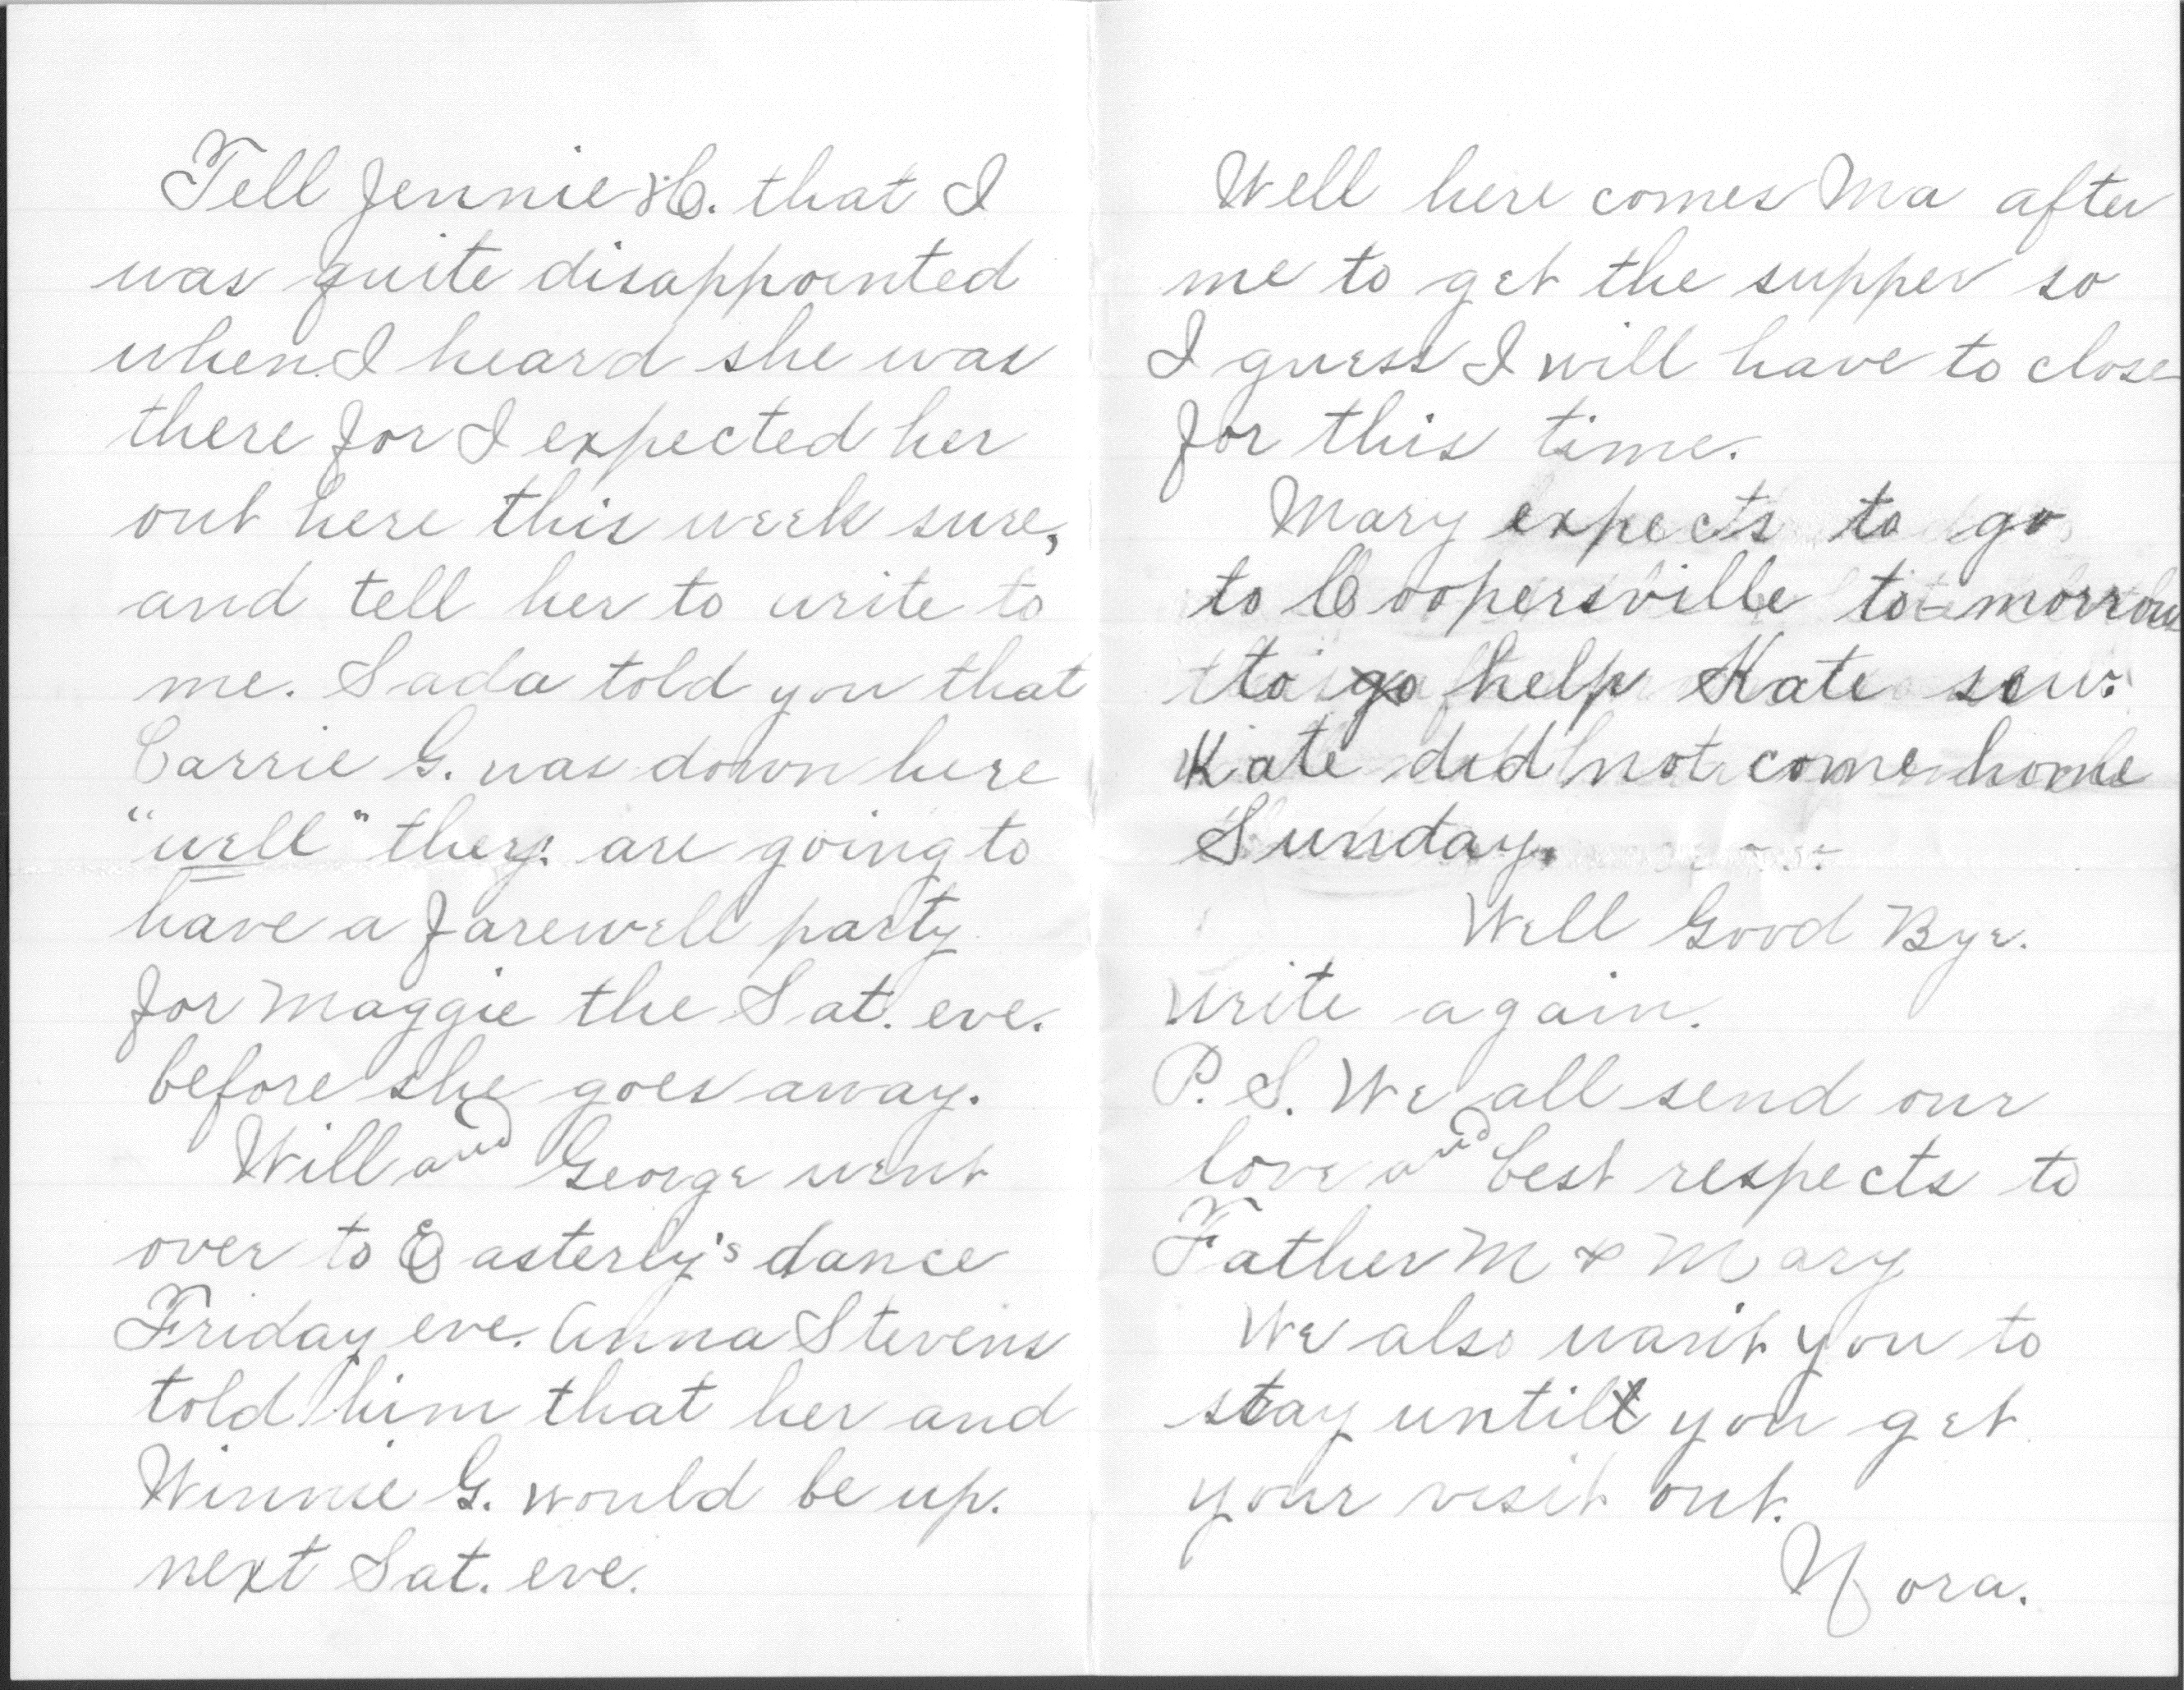 Tell Jennie H. that I
was quite disappointed
when I heard she was
there for I expected her
out here this week sure,
and tell her to write to
me. Sada told you that
Carrie G. was down here
"well" they are going to
have a farewell party
for Maggie the Sat. eve.
before she goes away.
Will and George went
over to Easterly's dance
Friday eve. Anna Stevens
told him that her and
Winnie G. would be up.
next Sat. eve.
Well here comes Ma after
me to get the supper so
I guess I will have to close
for this time.
Mary expects to go
to Coopersville to-morrow
to go help Kate sew.
Kate did not come home
Sunday.
Well Good Bye.
write again.
P.S. We all send our
love and best respects to
Father M & Mary
We also want you to
stay until you get
your visit out.
Nora.